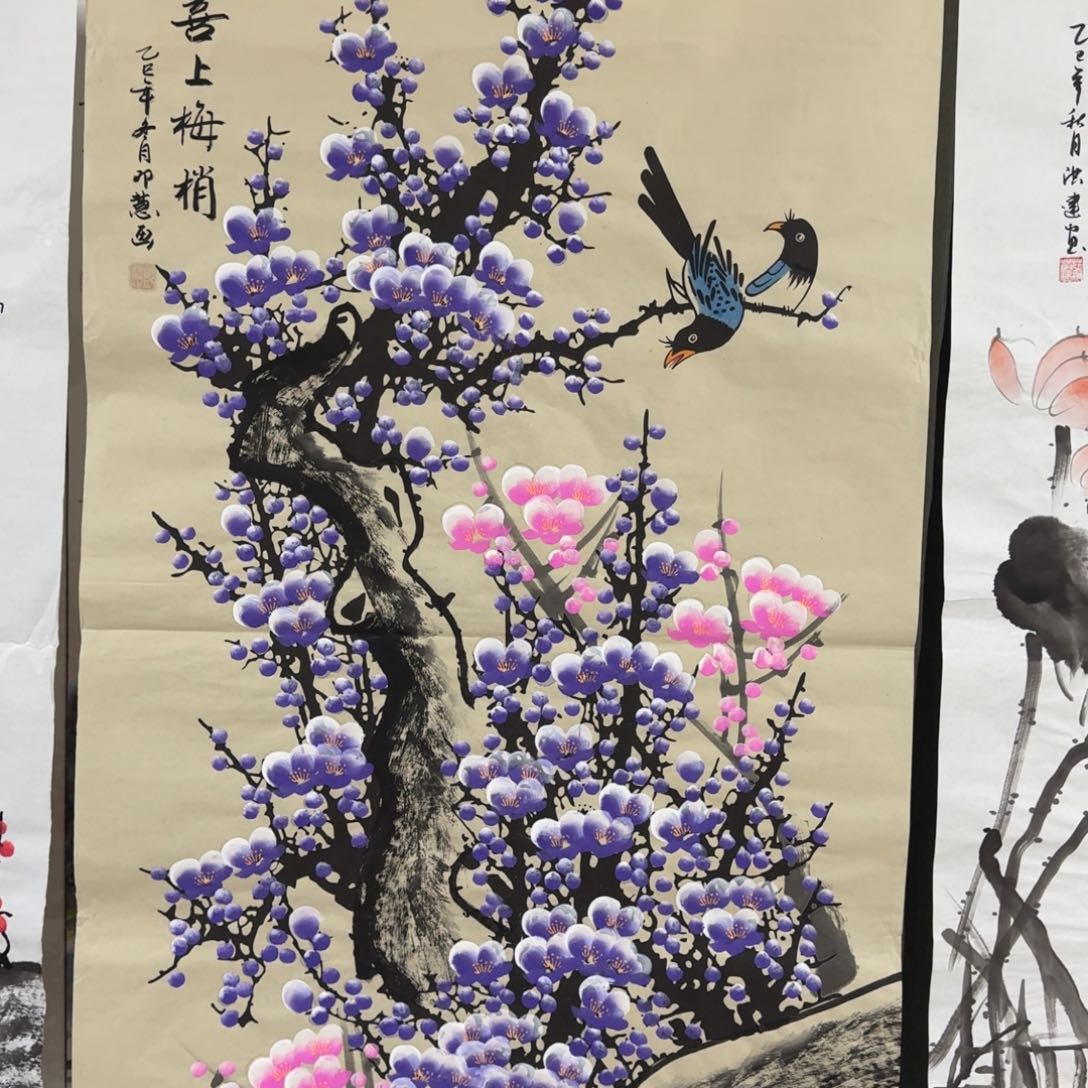 喜上梅梢
乙巳年冬月邓慧画
乙巳年秋月洪建画